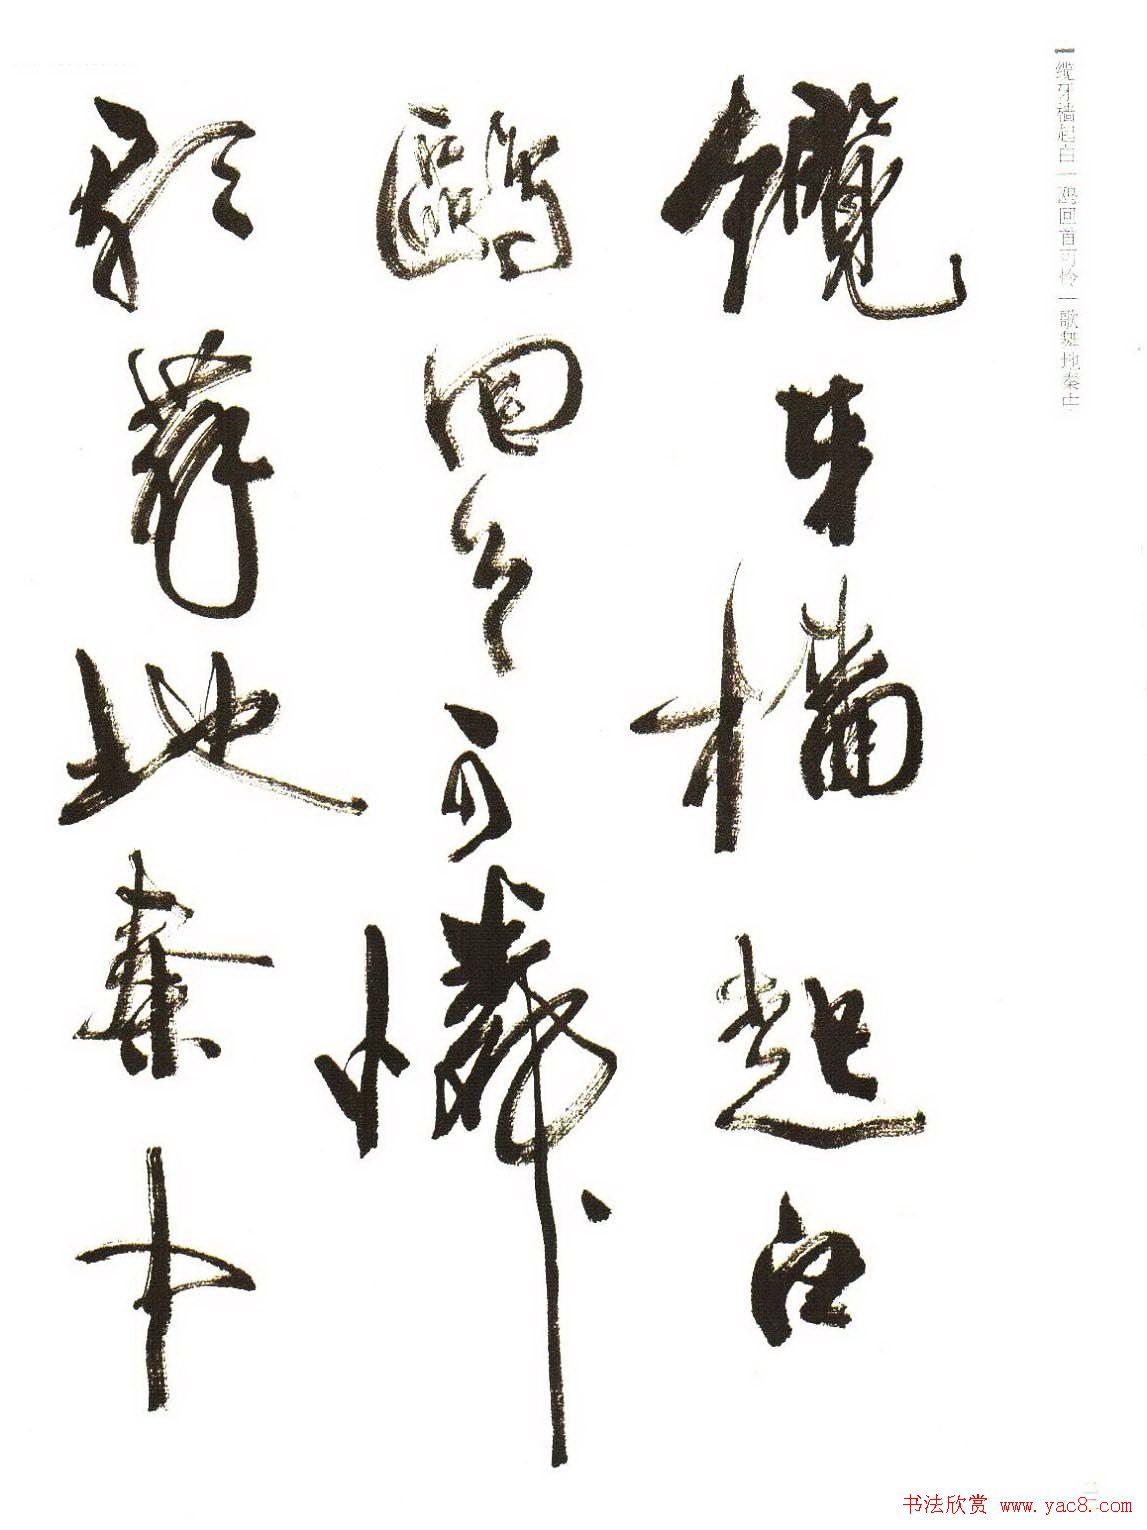 缆牙樯起白｜鸥回首可怜｜歌舞地秦中
纜牙檣起白
鷗回首可憐
歌舞地秦中
书法欣赏 www.yac8.com